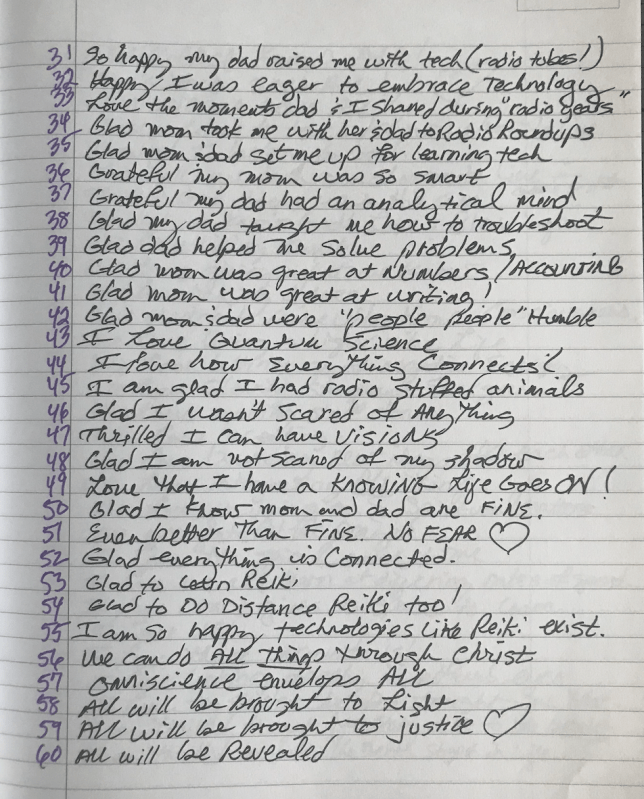 31 So happy my dad raised me with tech (radio tubes!)
32 Happy I was eager to embrace Technology
33 Love the moments dad & I shared during "radio years"
34 Glad mom took me with her & dad to Radio Roundups
35 Glad mom & dad set me up for learning tech
36 Grateful my mom was so smart
37 Grateful my dad had an analytical mind
38 Glad my dad taught me how to troubleshoot
39 Glad dad helped me solve problems
40 Glad mom was great at Numbers/Accounting
41 Glad mom was great at writing!
42 Glad mom & dad were "people people" Humble
43 I Love Quantum Science
44 I love how Everything Connects!
45 I am glad I had radio stuffed animals
46 Glad I wasn't Scared of Anything
47 Thrilled I can have Visions
48 Glad I am not scared of my shadow
49 Love that I have a KNOWING Life Goes ON!
50 Glad I know mom and dad are FINE.
51 Even better Than FINE. NO FEAR ♡
52 Glad everything is Connected.
53 Glad to Reiki
54 Glad to DO Distance Reiki too!
55 I am so happy technologies like Reiki exist.
56 We can do All Things through Christ
57 Omniscience envelops All
58 All will be brought to Light
59 All will be brought to justice ♡
60 All will be Revealed